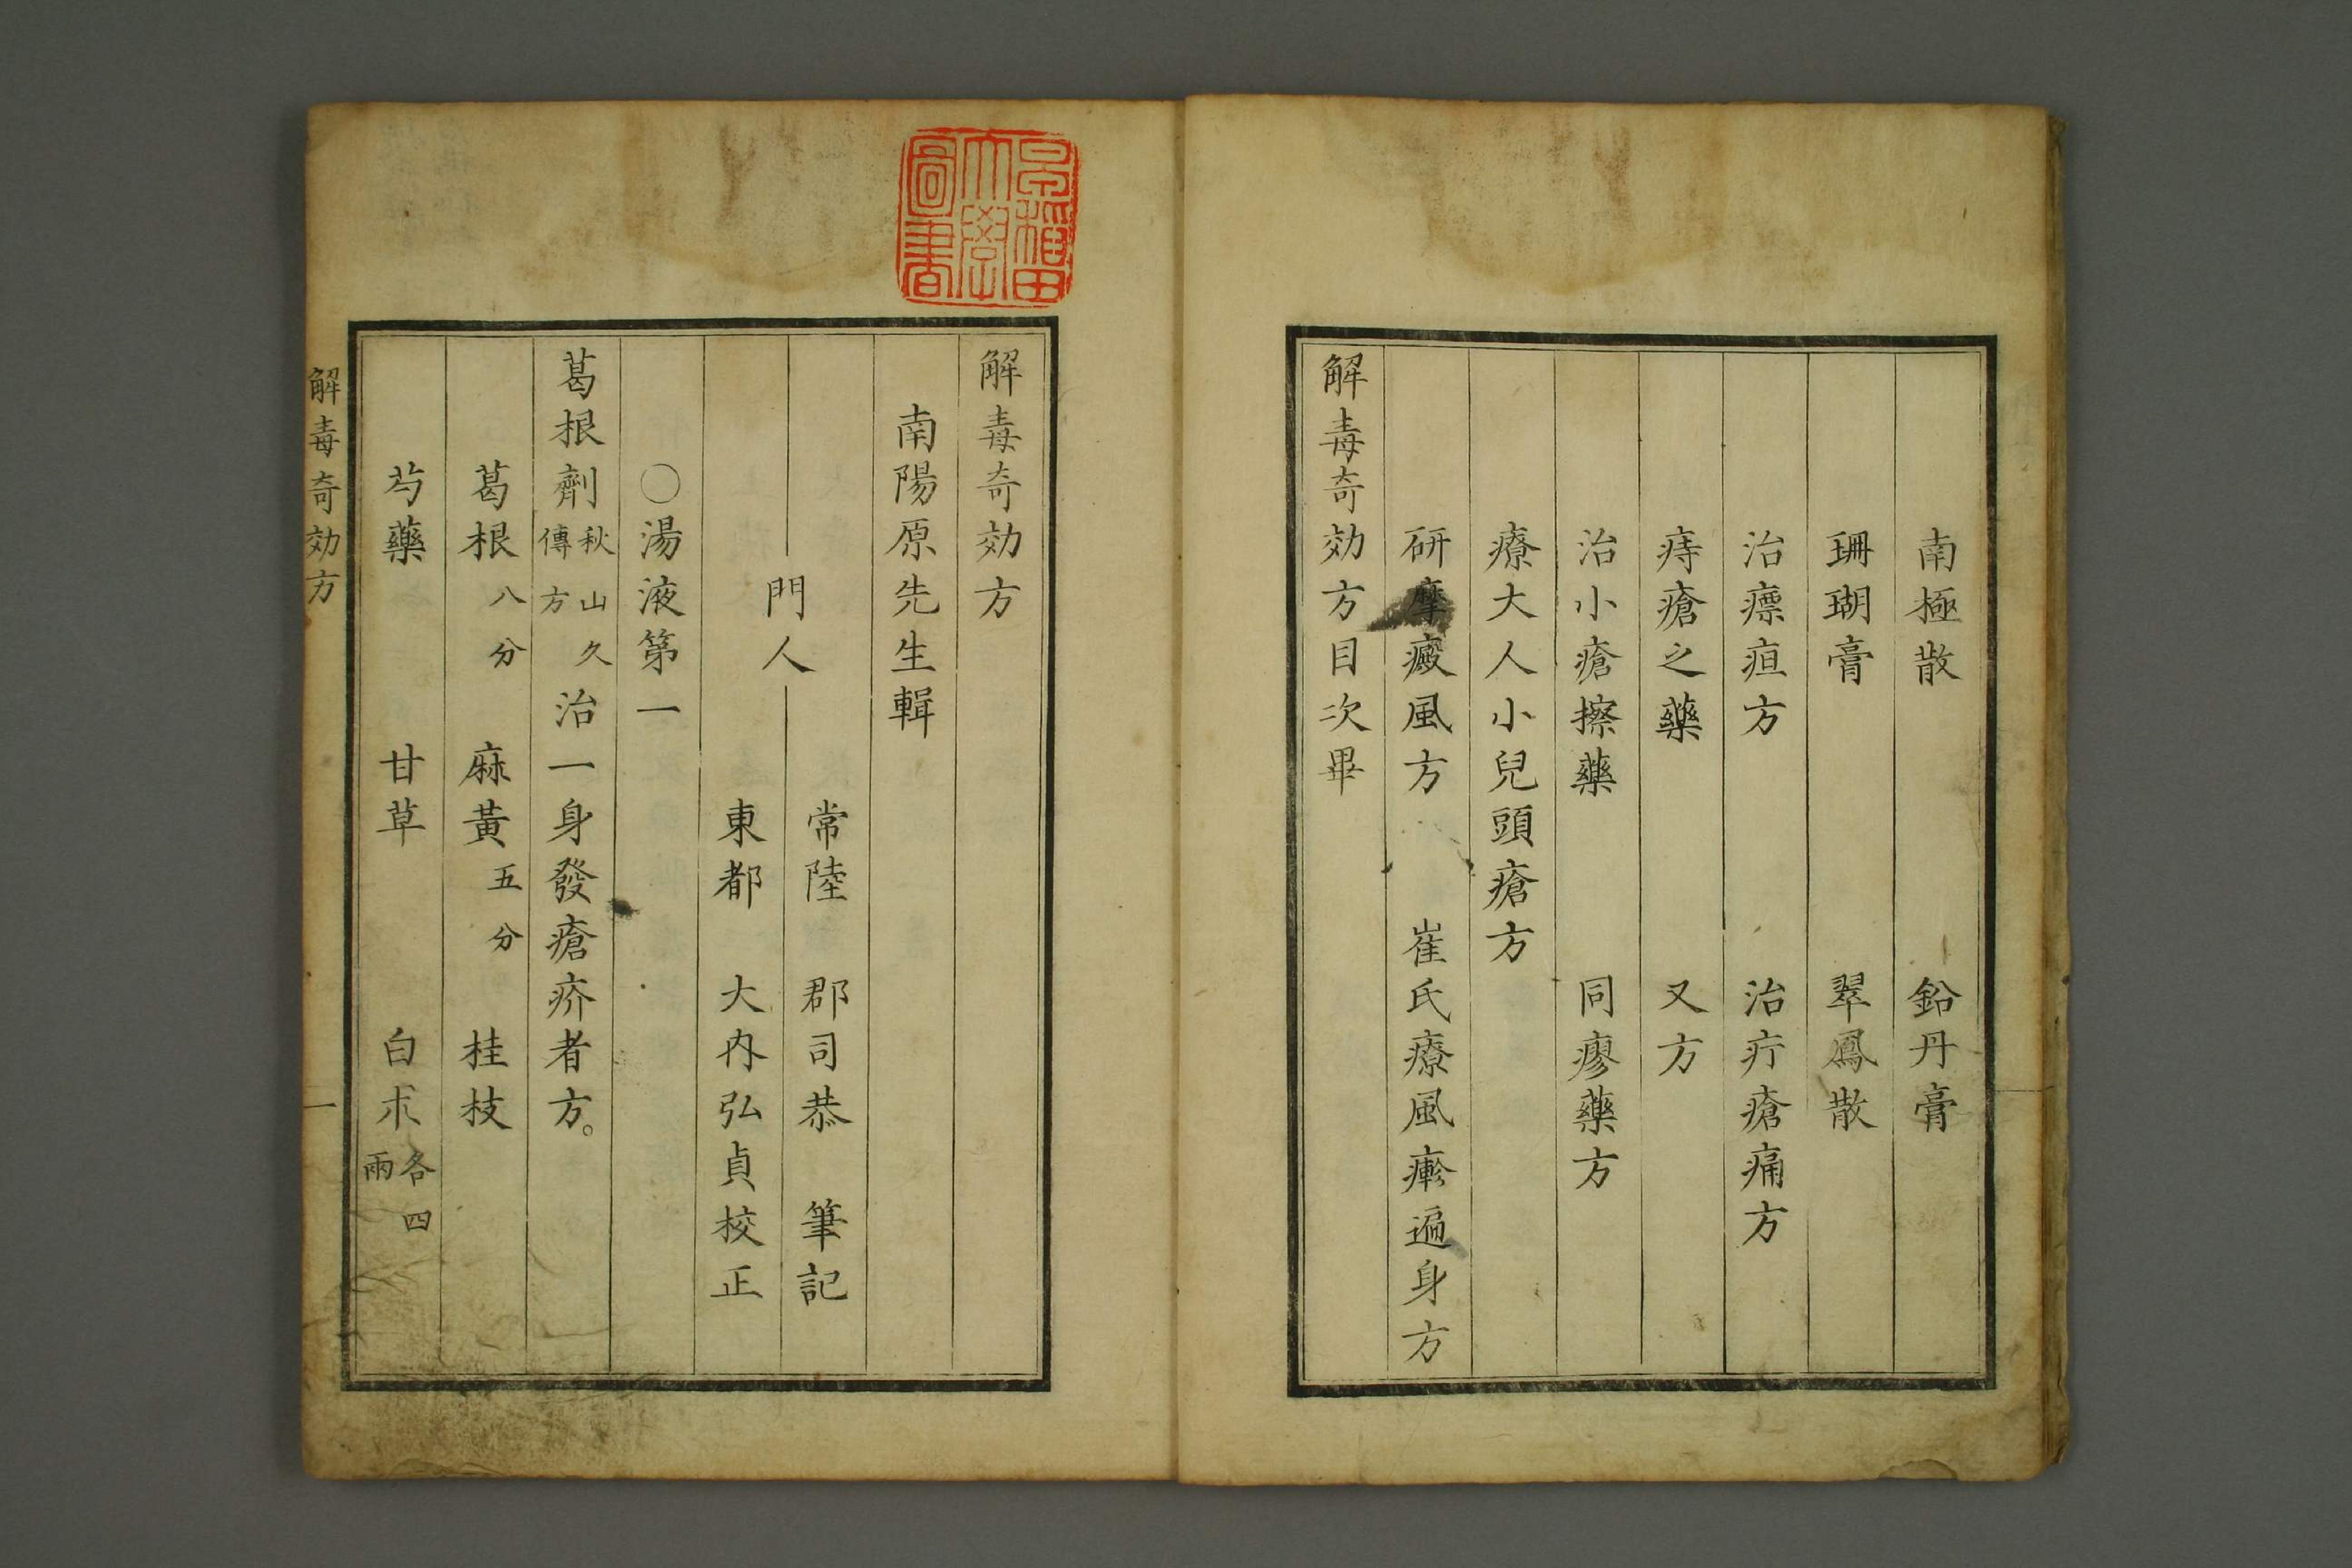 南極散　鉛丹膏
珊瑚膏　翠鳳散
治瘭疽方　治疔瘡痛方
痔瘡之藥　又方
治小瘡擦藥　同瘳藥方
療大人小兒頭瘡方
研摩癜風方　崔氏療風𤺋遍身方
解毒奇効方目次畢
早稲田大學圖書
解毒奇効方
南陽原先生輯
門人
常陸　郡司恭　筆記
東都　大内弘貞校正
○湯液第一
葛根劑秋山久傳方治一身發瘡疥者方。
葛根八分　麻黃五分　桂枝
芍藥　甘草　白朮各四兩
解毒奇効方　一